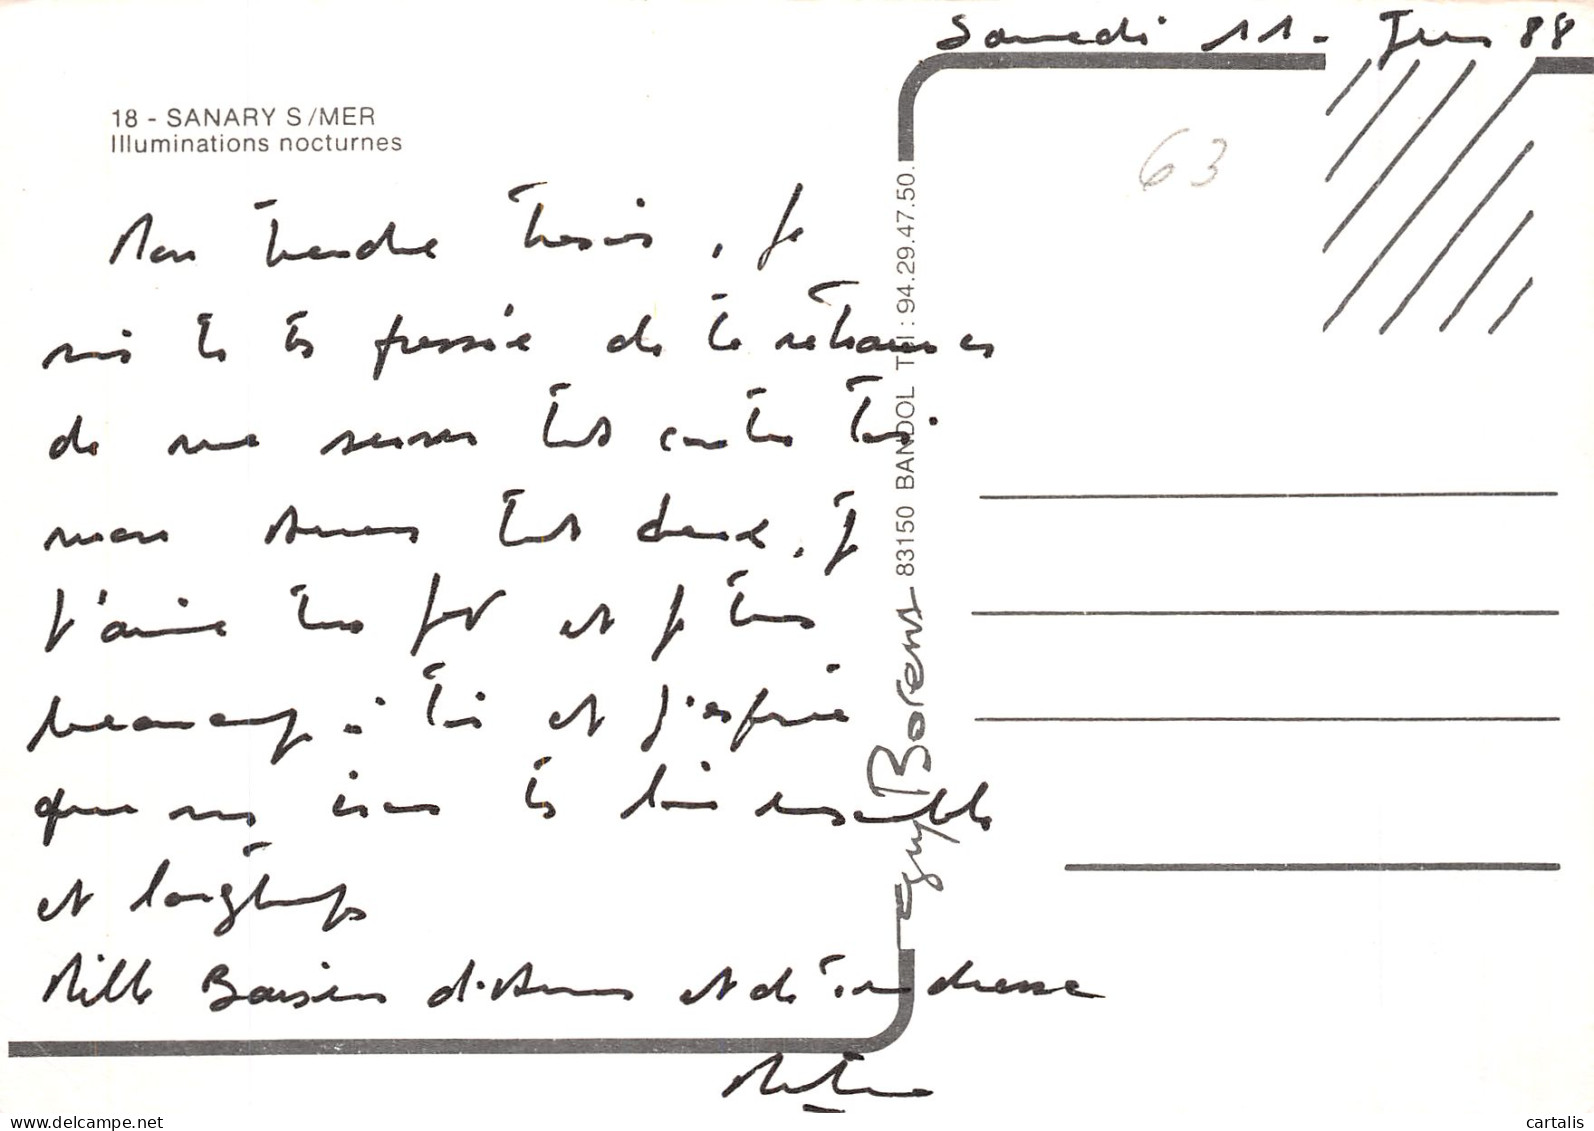 Samedi 11 - Juin 88
18 - SANARY S/MER
Illuminations nocturnes
63
Mon tendre Trésor, je
suis très très pressée de te retrouver
de me serrer tout contre toi
mon Amour tout doux, je
t'aime très fort et je tiens
beaucoup à toi et j'espère
que nous irons très loin ensemble
et longtemps
Mille Baisers d'Amour et de Tendresse
guy Borens 83150 BANDOL Tél : 94.29.47.50.
www.delcampe.net
cartalis